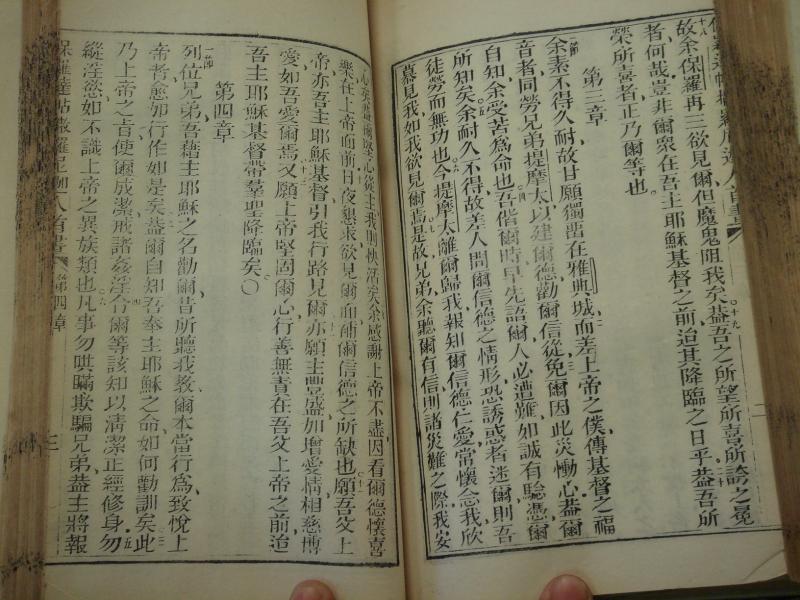 故余保羅再三欲見爾但魔鬼阻我矣蓋吾之所望所喜所誇之冕
者何哉豈非爾眾在吾主耶穌基督之前迨其降臨之日乎蓋吾所
榮所喜者正乃爾等也
第三章
余素不得久耐故甘願獨畱在雅典城而差上帝之僕傳基督之福
音者同勞兄弟提摩太以建爾德勸爾信從免爾因此災慟心蓋爾
自知余受苦為命也吾偕爾時早先語爾人必遭難如誠有驗憑爾
所知矣余耐久不得故差人問爾信德之情形恐誘惑者迷爾則吾
徒勞而無功也今提摩太離爾歸我報知爾信德仁愛常懷念我欣
慕見我如我欲見爾焉是故兄弟余聽爾有信則諸災難之際我安
心矣蓋爾堅心從主我則快活矣余感謝上帝不盡因看爾德懷喜
樂在上帝面前日夜懇求欲見爾面補爾信德之所缺也願吾父上
帝亦吾主耶穌基督引我行路見爾亦願主豐盛加增愛情相慈博
愛如吾愛爾焉又願上帝堅固爾心行善無責在吾父上帝之前迨
吾主耶穌基督帶羣聖降臨矣〇
第四章
列位兄弟吾藉主耶穌之名勸爾昔所聽我教爾本當行為致悅上
帝者愈如行作如是矣蓋爾自知吾奉主耶穌之命如何勸訓矣此
乃上帝之旨使爾成潔戒諸姦淫令爾等該知以清潔正經修身勿
縱淫慾如不識上帝之異族類也凡事勿哄瞞欺騙兄弟蓋主將報
保羅達帖撒羅尼迦人首書 第四章 三